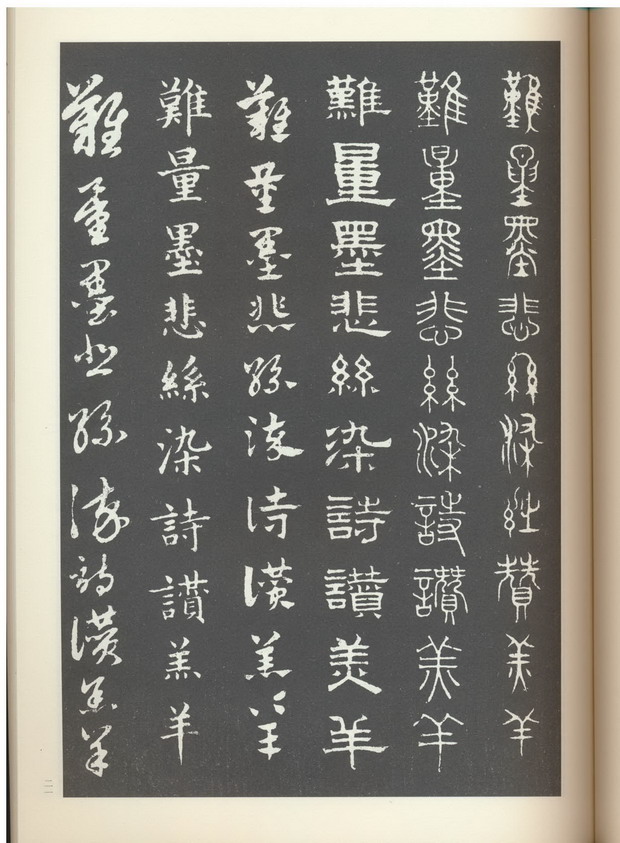 難量墨悲絲染詩贊羔羊
難量墨悲絲染詩讚羔羊
難量墨悲絲染詩讃羔羊
難量墨悲絲染詩讃羔羊
難量墨悲絲染詩讃羔羊
難量墨悲絲染詩讃羔羊
二一